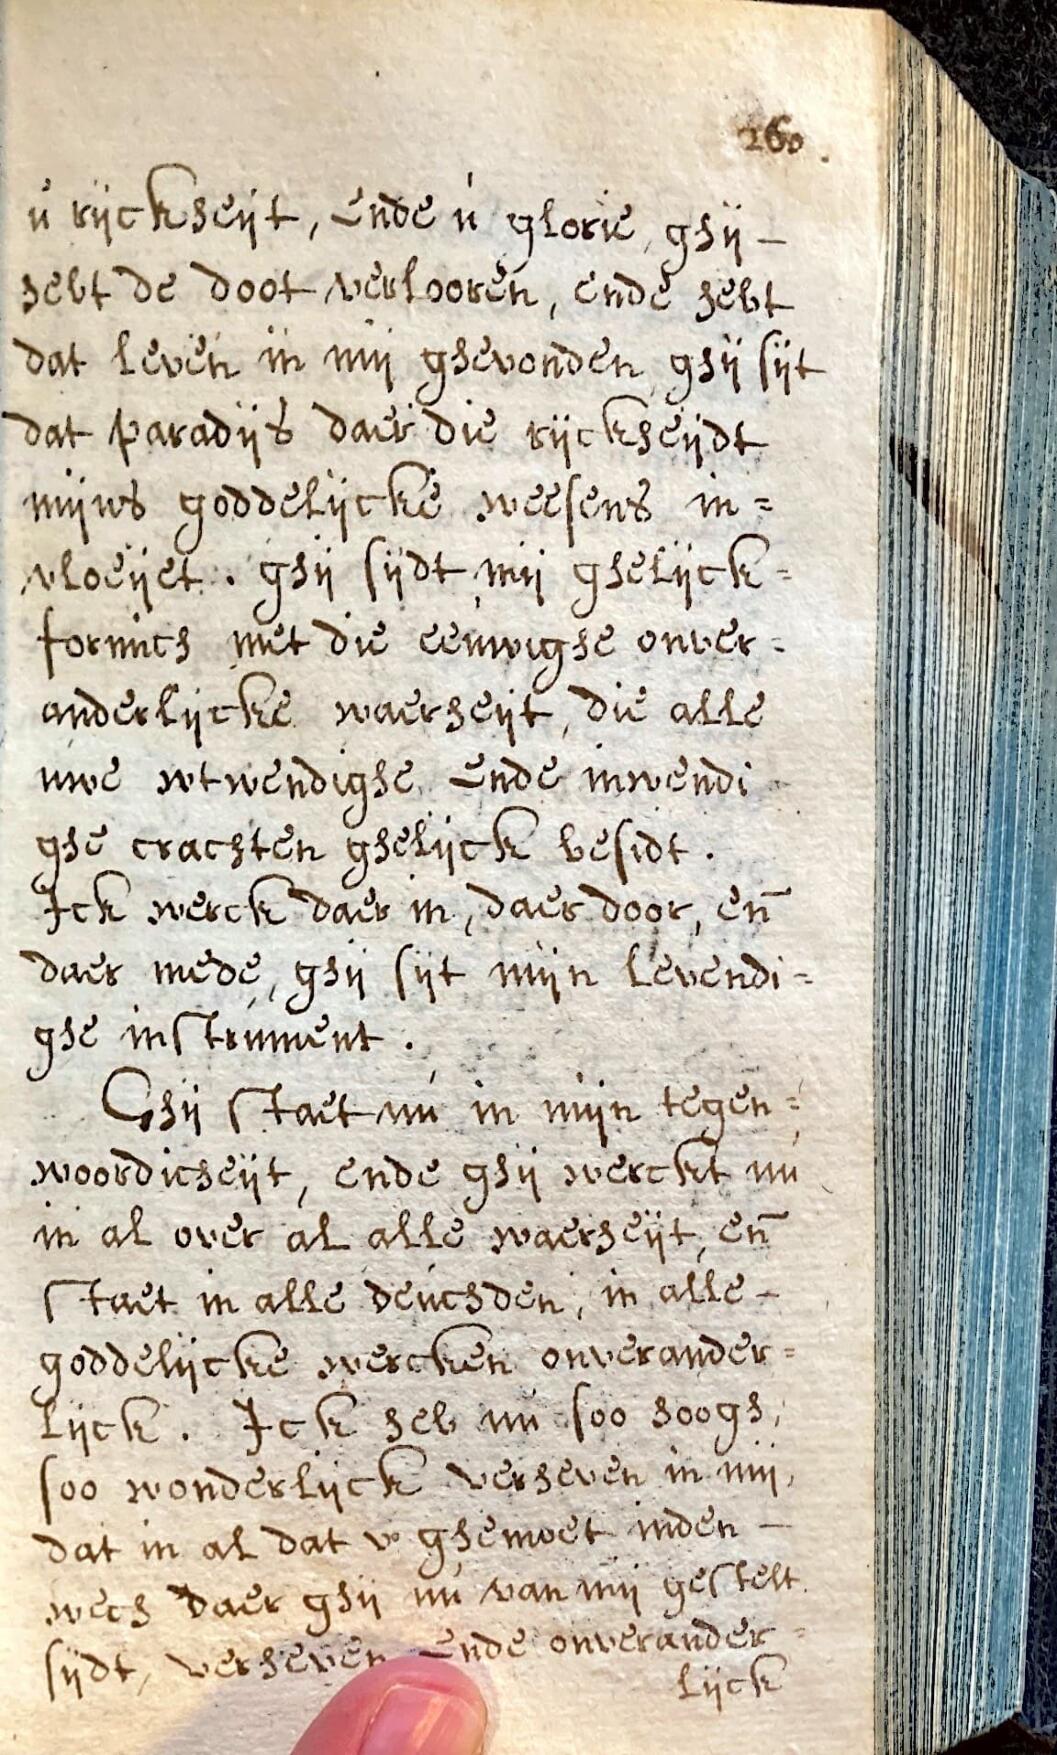 260.
ú rijckheijt, ende ú glorie, ghij -
hebt de doot verlooren, ende hebt
dat leven in mij ghevonden, ghij sijt
dat paradijs daer die rijckheijdt
mijns goddelijcke weesens in=
vloeijet. ghij sijdt mij ghelijck=
formich met die eeuwighe onver=
anderlijcke waerheijt, die alle
uwe wtwendighe ende inwendi
ghe crachten ghelijck besidt.
Ick werck daer in, daer door, en̄
daer mede, ghij sijt mijn levendi=
ghe instrument.
Ghij staet nú in mijn tegen=
woordicheijt, ende ghij werckt nú
in al over al alle waerheijt, en̄
staet in alle deúchden, in alle -
goddelijcke wercken onverander=
lijck. Ick heb nú soo hoogh,
soo wonderlijck verheven in mij,
dat in al dat v ghemoet inden -
wech daer ghij nú van mij gestelt
sijdt, verheven ende onverander=
lijck